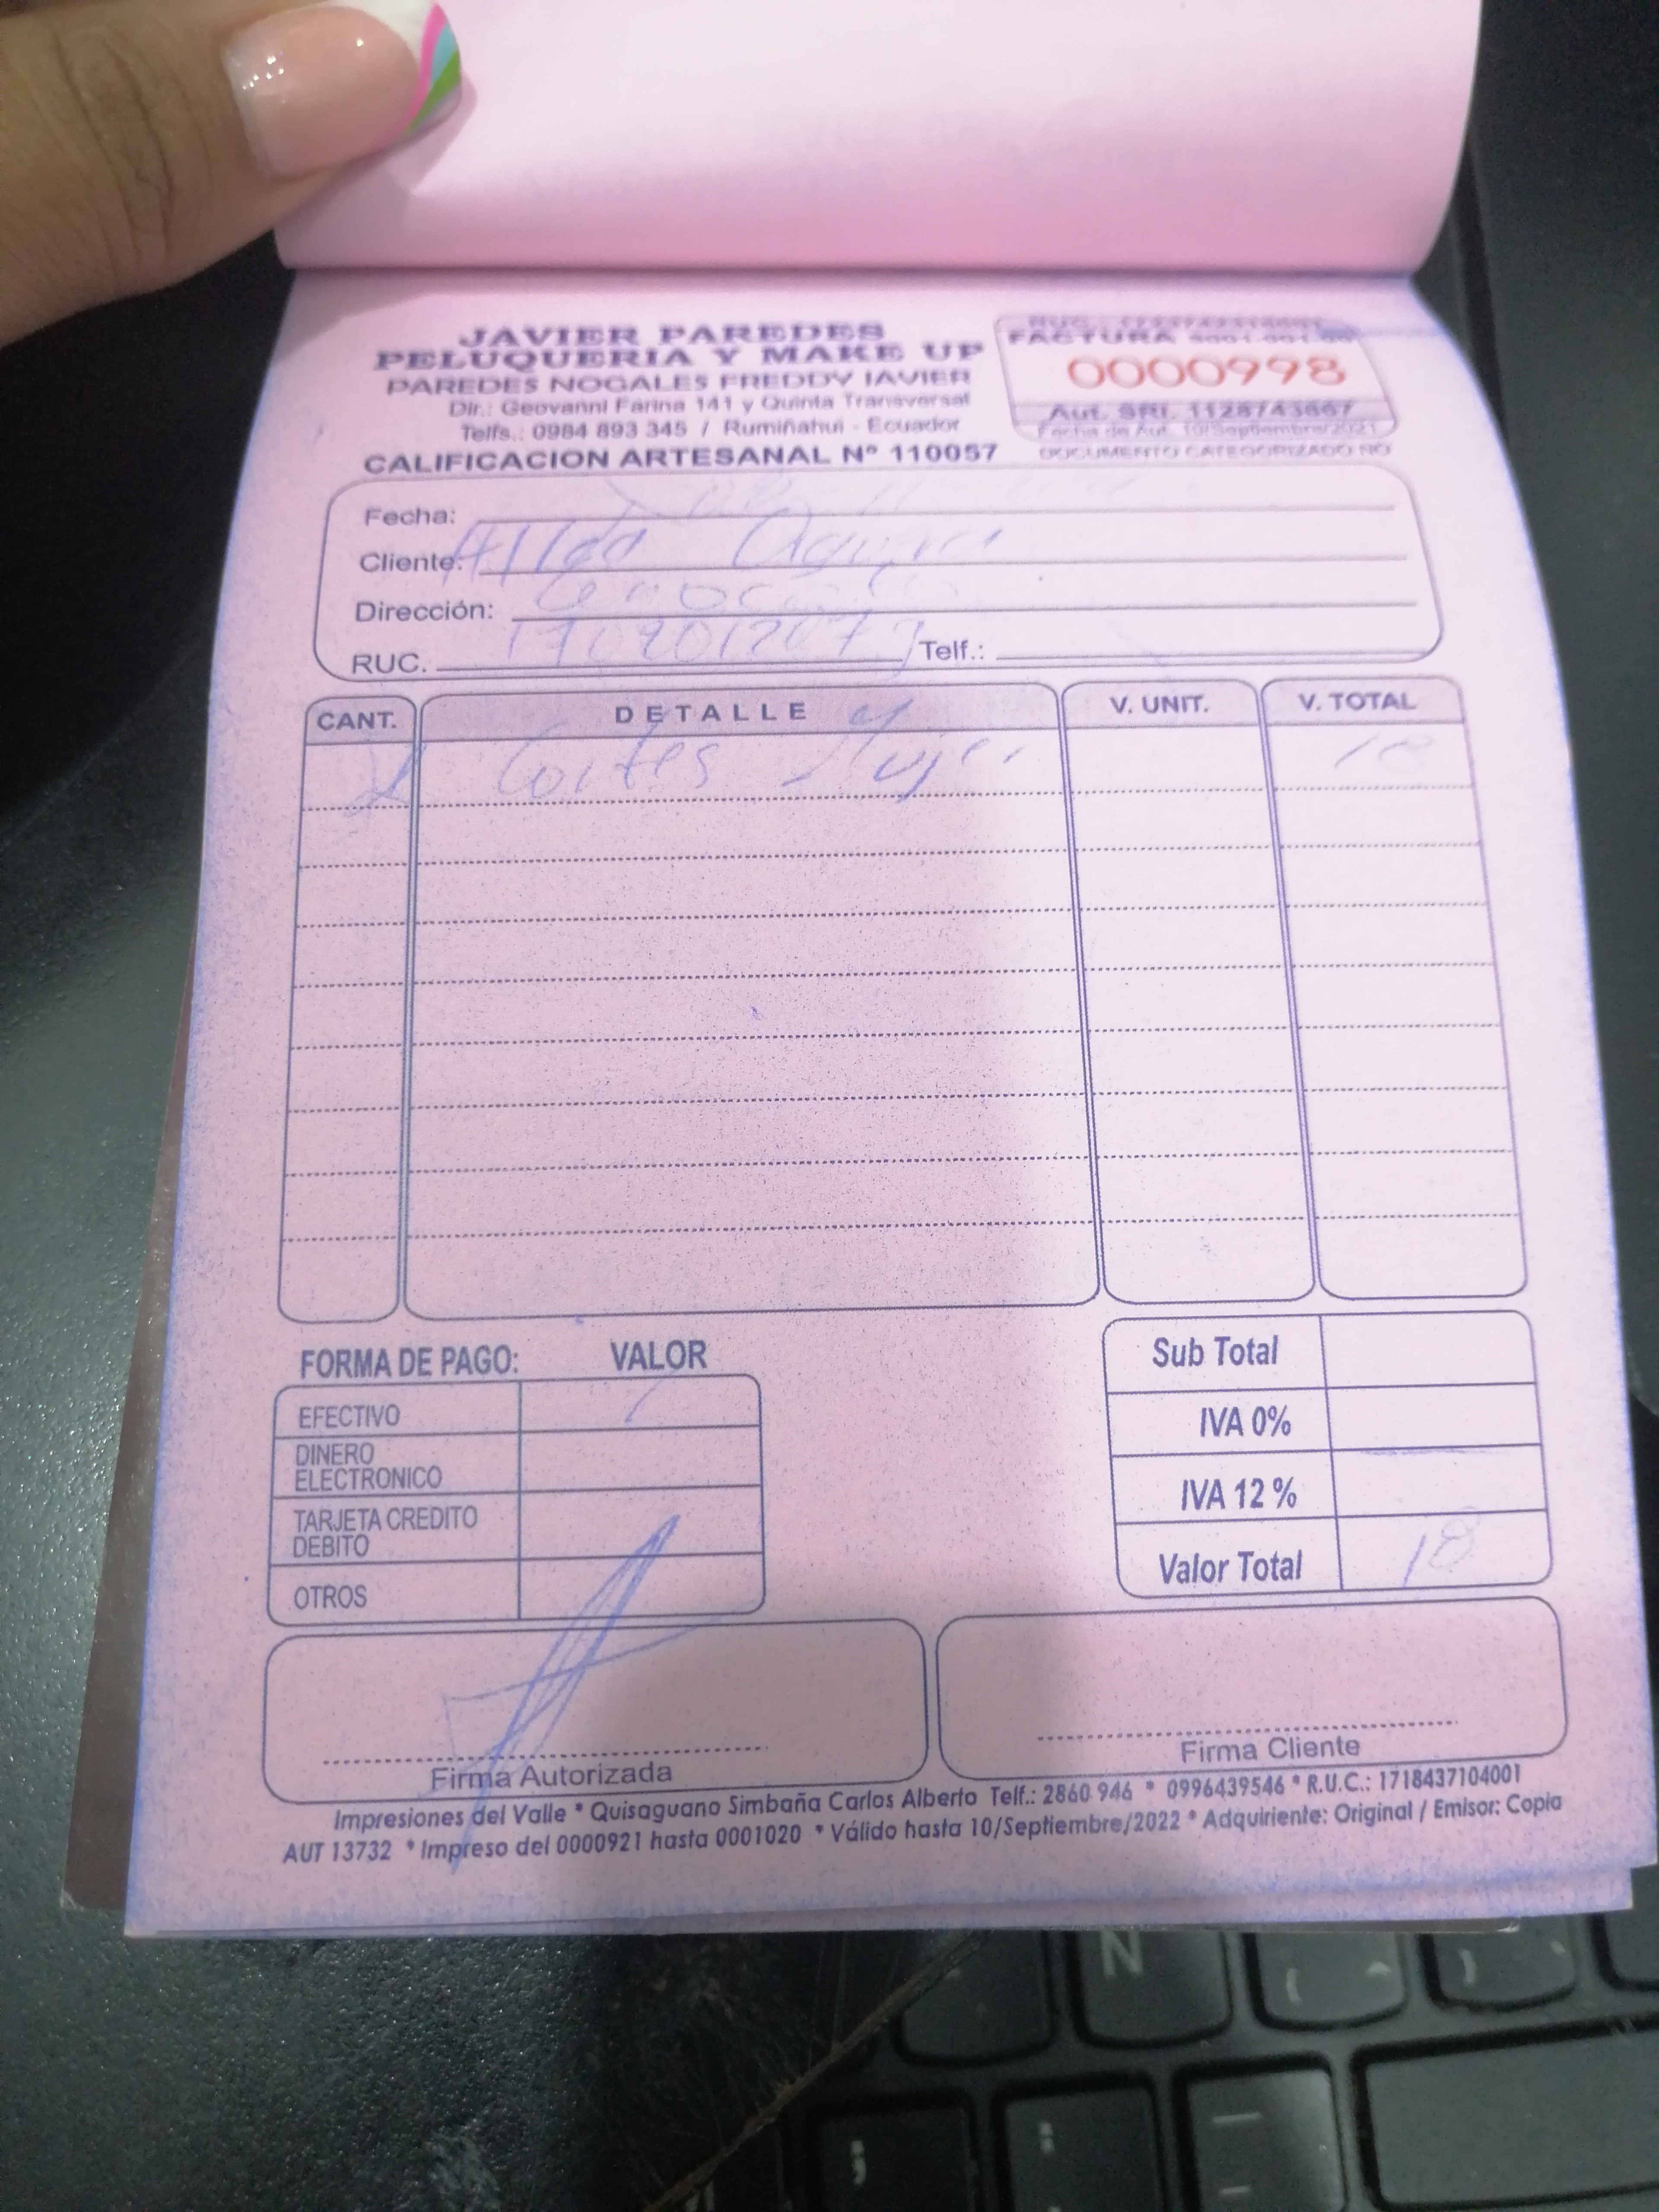 JAVIER PAREDES
PELUQUERIA Y MAKE UP
PAREDES NOGALES FREDDY JAVIER
Dir.: Geovanni Farina 141 y Quinta Transversal
Telfs.: 0984 893 345 / Rumiñahui - Ecuador
CALIFICACION ARTESANAL Nº 110057
RUC.
FACTURA S001-001-00
0000998
Aut. SRI. 1128743667
Fecha de Aut. 10/Septiembre/2021
DOCUMENTO CATEGORIZADO NO
Fecha:
Cliente:
Dirección:
RUC. Telf.:
CANT. DETALLE V. UNIT. V. TOTAL
Cortes Mujer 18
FORMA DE PAGO: VALOR
EFECTIVO
DINERO
ELECTRONICO
TARJETA CREDITO
DEBITO
OTROS
Sub Total
IVA 0%
IVA 12 %
Valor Total 18
Firma Autorizada
Firma Cliente
Impresiones del Valle * Quisaguano Simbaña Carlos Alberto Telf.: 2860 946 * 0996439546 * R.U.C.: 1718437104001
AUT 13732 * Impreso del 0000921 hasta 0001020 * Válido hasta 10/Septiembre/2022 * Adquiriente: Original / Emisor: Copia
N